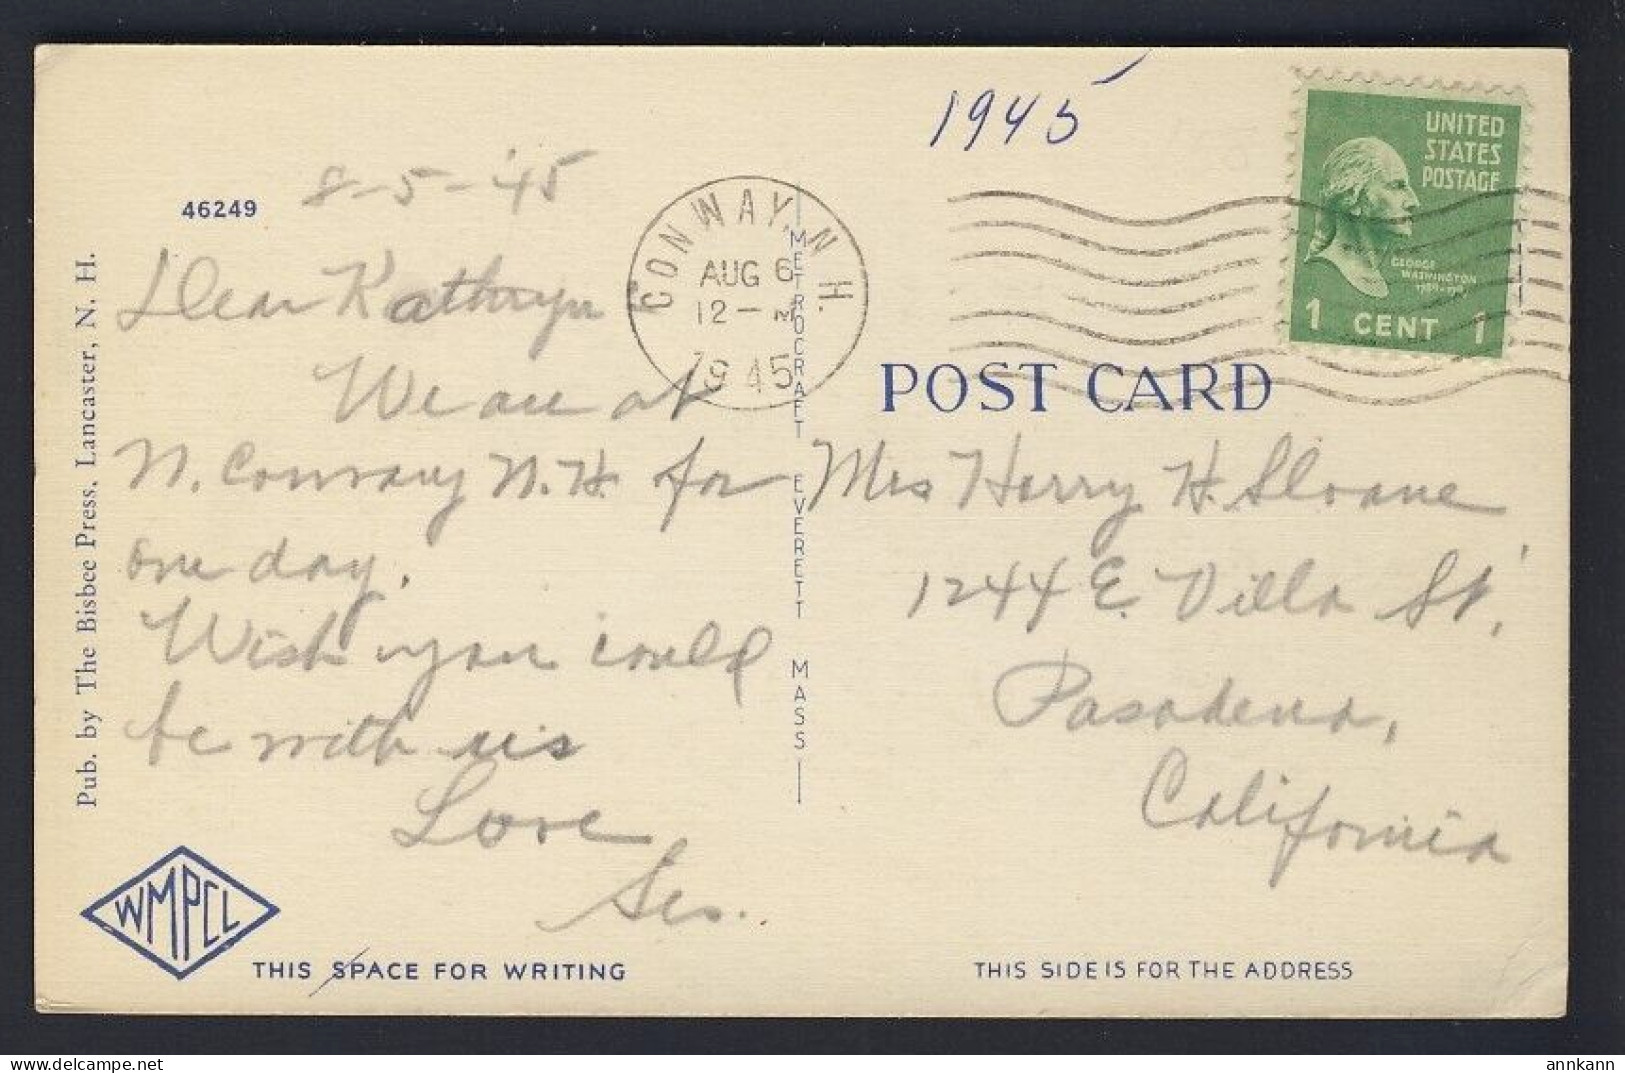 1945
8-5-'45
46249
Dear Kathryn
We are at
N. Conway N.H. for
one day.
Wish you could
be with us
Love
Ses.
Pub. by The Bisbee Press, Lancaster, N. H.
WMPCL
THIS SPACE FOR WRITING
CONWAY, N.H.
AUG 6
12 - M
1945
METROCRAFT EVERETT MASS
UNITED
STATES
POSTAGE
GEORGE
WASHINGTON
1 CENT 1
POST CARD
Mrs Harry H. Sloane
1244 E. Villa St,
Pasadena,
California
THIS SIDE IS FOR THE ADDRESS
annkann